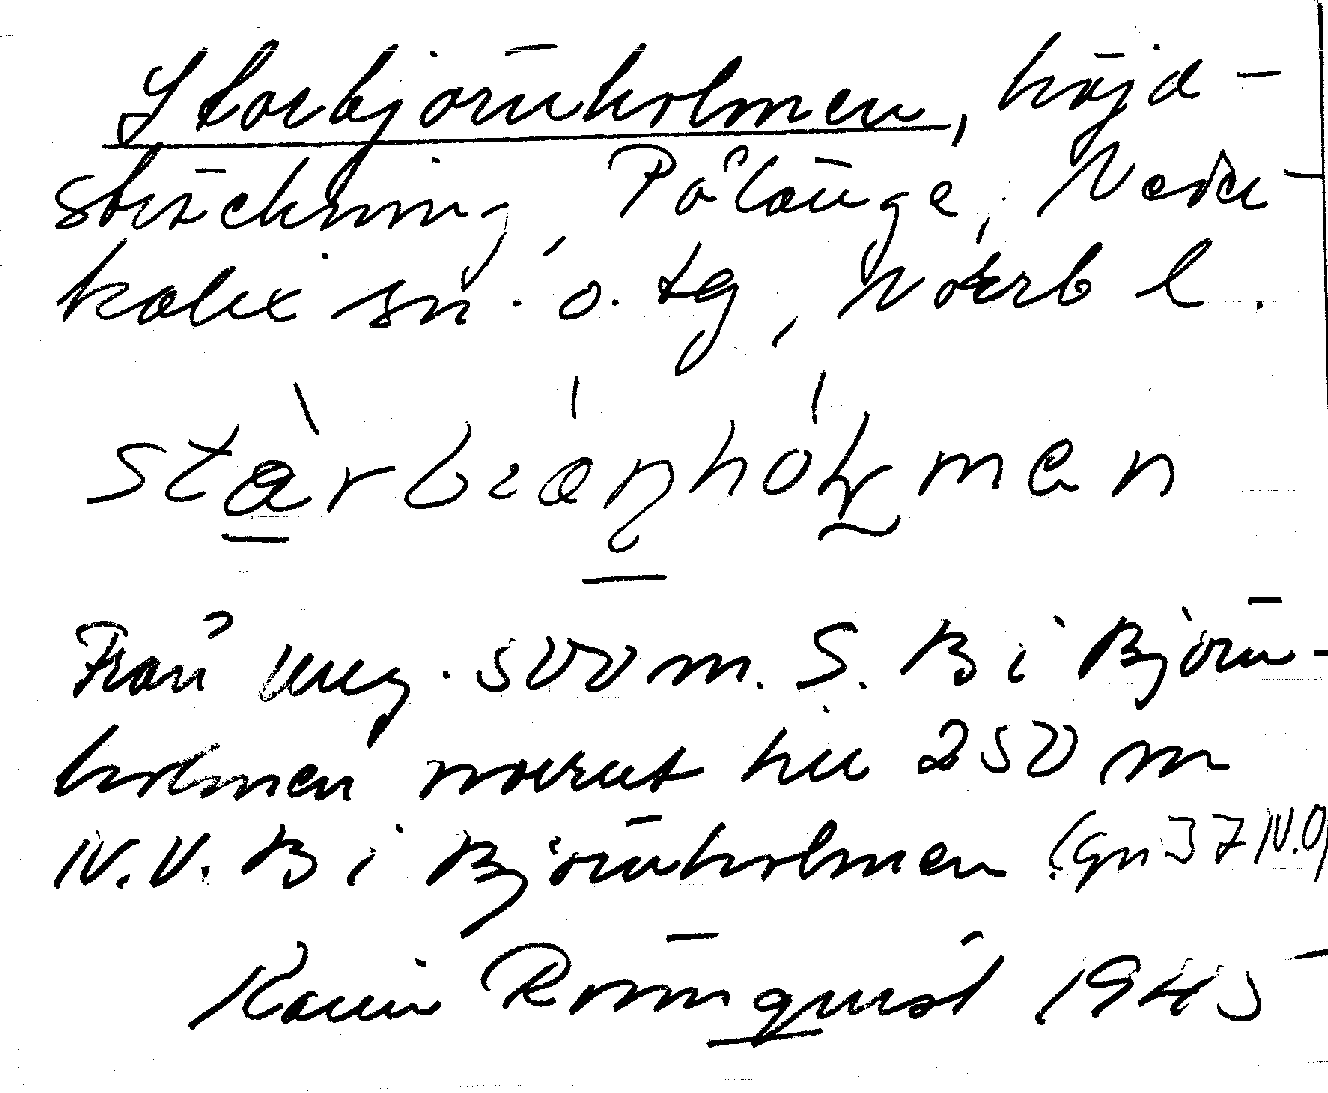 Storbjörnholmen, höjd-
sträckning, Pålänge, Neder-
kalix sn. o. tg, Norrb l.
Från ung. 500 m. S. B i Björn-
holmen norrut till 250 m
N.V. B i Björnholmen (Gn 37 N.O)
Karin Rönnquist 1945